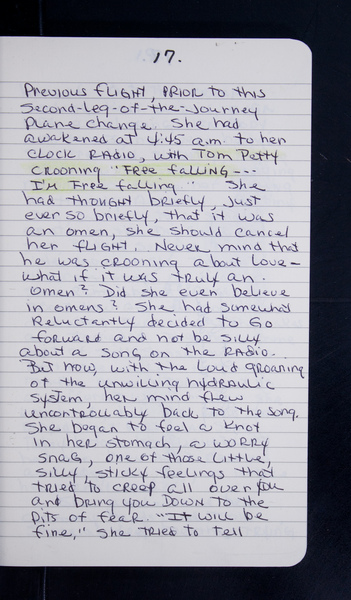 17.
Previous flight, prior to this
second-leg-of-the-journey
plane change. She had
awakened at 4:45 a.m. to her
clock radio, with Tom Petty
crooning "Free falling ---
I'm Free falling" She
had thought briefly, just
ever so briefly, that it was
an omen, she should cancel
her flight. Never mind that
he was crooning about love -
what if it was truly an
omen? Did she even believe
in omens? She had somewhat
reluctantly decided to go
forward and not be silly
about a song on the radio.
But now, with the loud groaning
of the unwilling hydraulic
system, her mind flew
uncontrollably back to the song.
She began to feel a knot
in her stomach, a worry
snag, one of those little,
silly, sticky feelings that
tried to creep all over you
and bring you down to the
pits of fear. "It will be
fine," she tried to tell